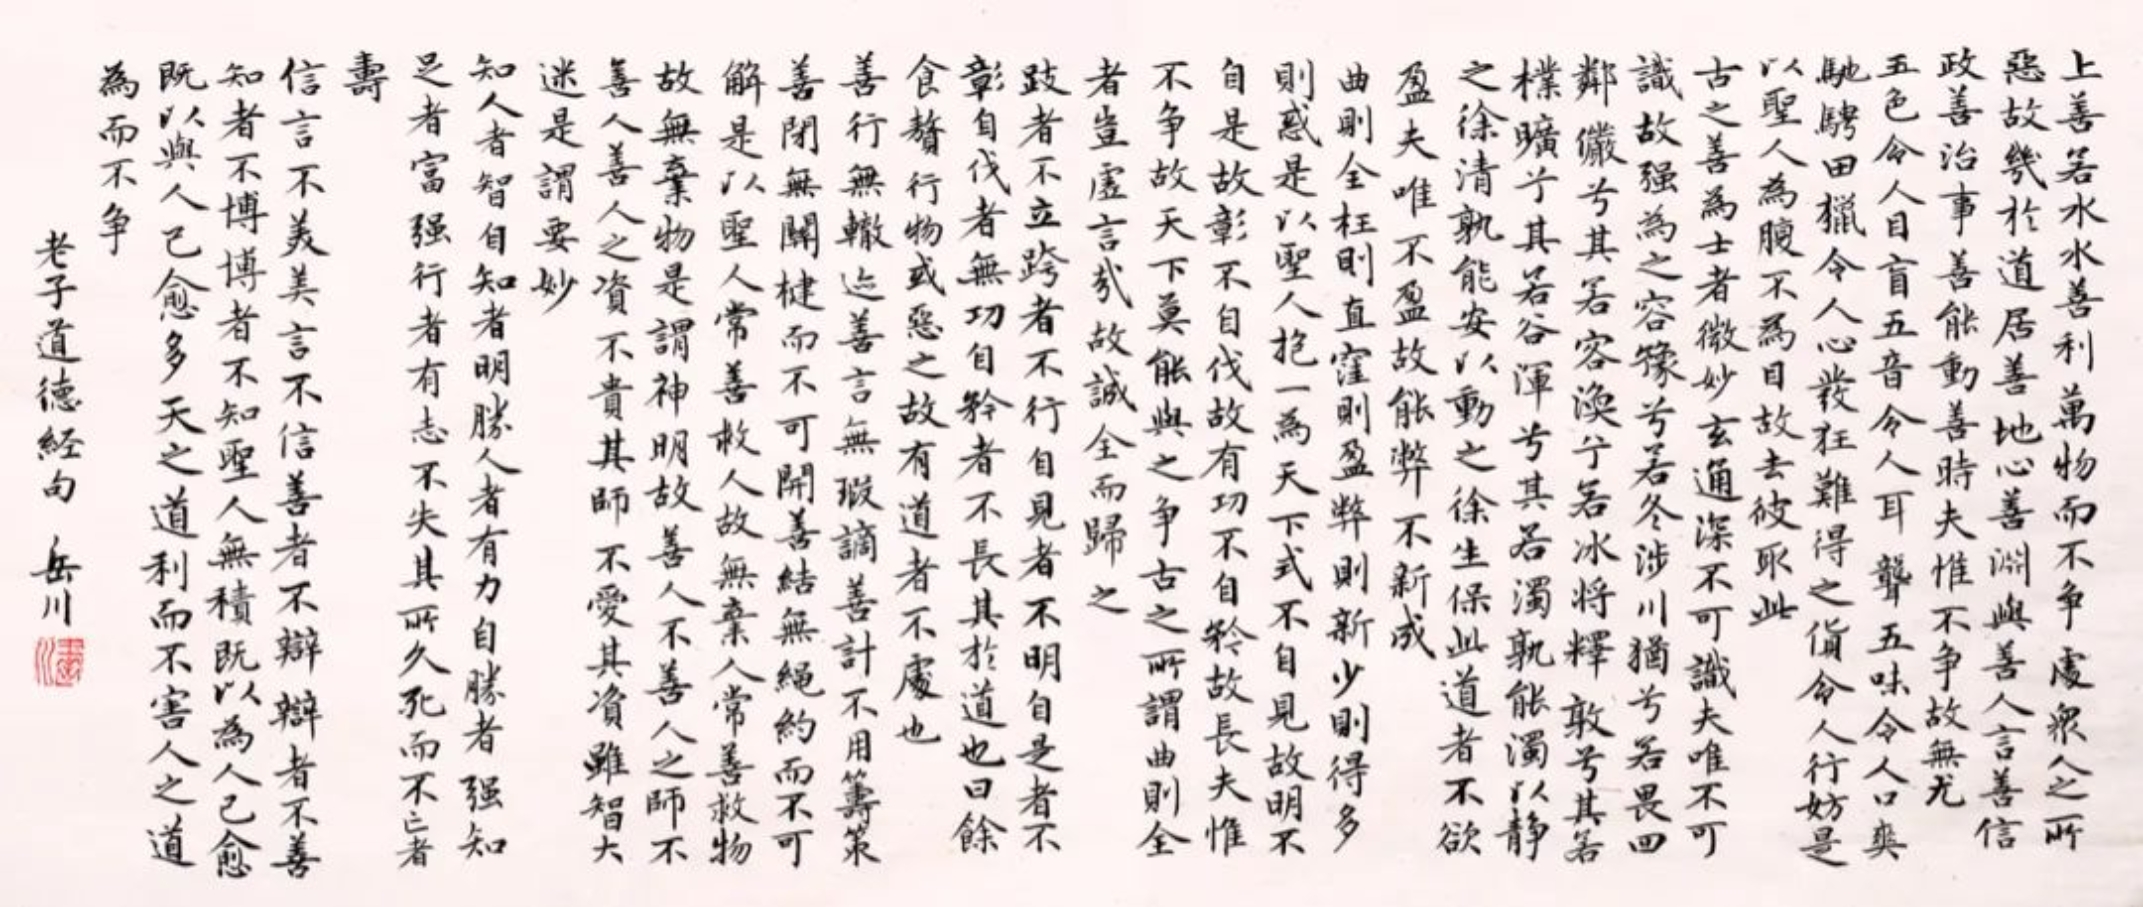 上善若水水善利萬物而不争處衆人之所
惡故幾於道居善地心善淵與善人言善信
政善治事善能動善時夫惟不争故無尤
五色令人目盲五音令人耳聾五味令人口爽
馳騁田獵令人心發狂難得之貨令人行妨是
以聖人為腹不為目故去彼取此
古之善為士者微妙玄通深不可識夫唯不可
識故强為之容豫兮若冬涉川猶兮若畏四
鄰儼兮其若容渙兮若冰将釋敦兮其若
樸曠兮其若谷渾兮其若濁孰能濁以静
之徐清孰能安以動之徐生保此道者不欲
盈夫唯不盈故能弊不新成
曲則全枉則直窪則盈弊則新少則得多
則惑是以聖人抱一為天下式不自見故明不
自是故彰不自伐故有功不自矜故長夫惟
不争故天下莫能與之争古之所謂曲則全
者豈虚言哉故誠全而歸之
跂者不立跨者不行自見者不明自是者不
彰自伐者無功自矜者不長其於道也曰餘
食贅行物或惡之故有道者不處也
善行無轍迹善言無瑕謫善計不用籌策
善閉無關楗而不可開善結無繩約而不可
解是以聖人常善救人故無棄人常善救物
故無棄物是謂神明故善人不善人之師不
善人善人之資不貴其師不愛其資雖智大
迷是謂要妙
知人者智自知者明勝人者有力自勝者强知
足者富强行者有志不失其所久死而不亡者
壽
信言不美美言不信善者不辯辯者不善
知者不博博者不知聖人無積既以為人己愈
既以與人己愈多天之道利而不害人之道
為而不争
老子道德経句 岳川